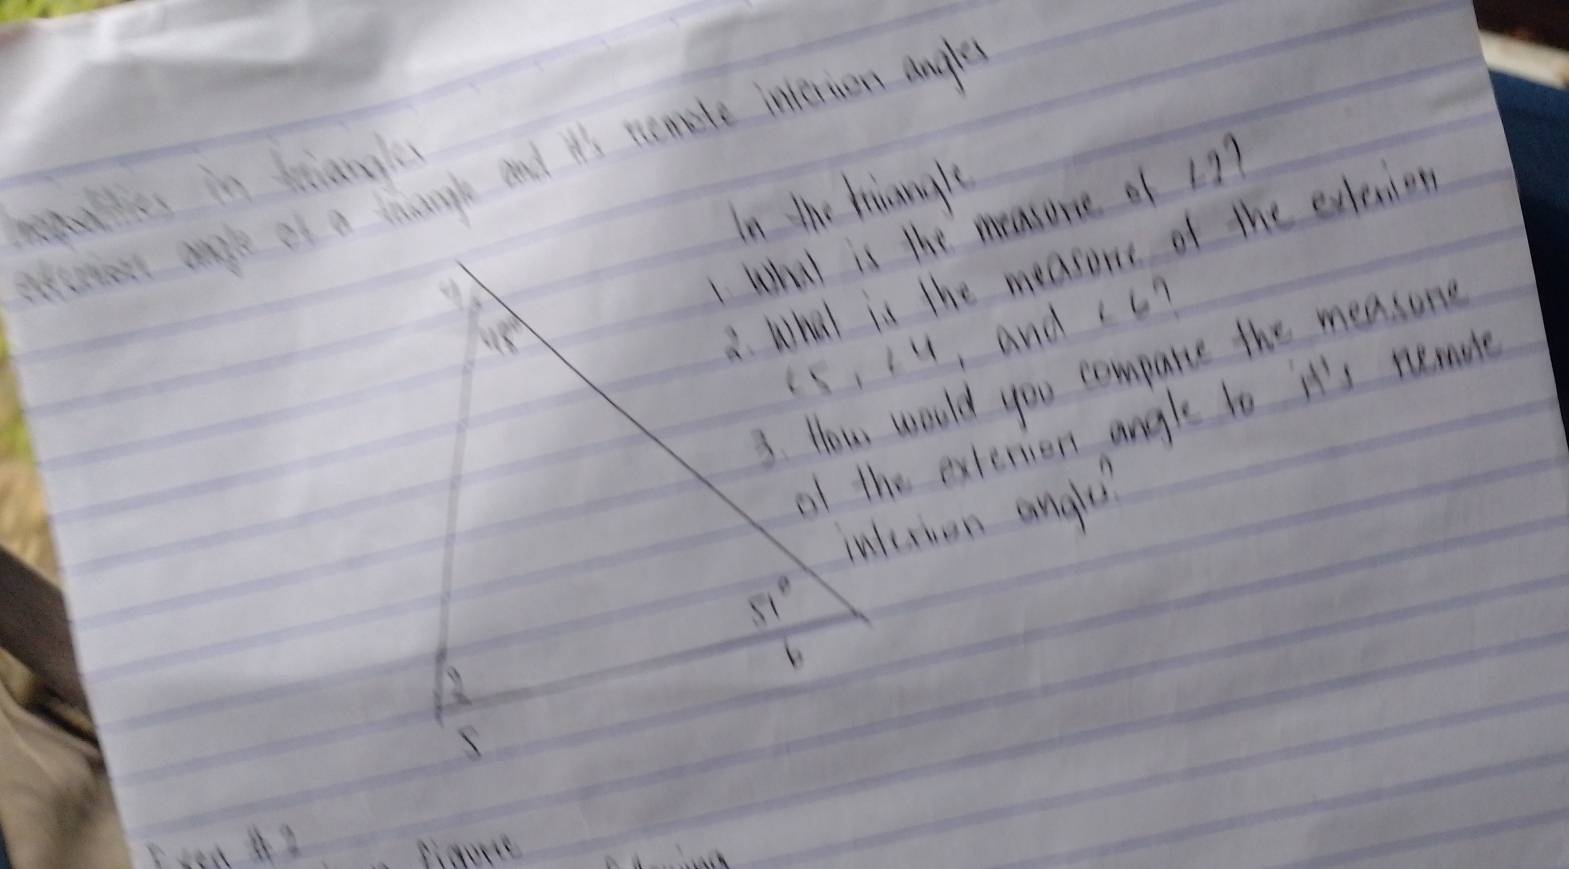 in triangles
exterion angle of a triangle and it's remote interion angles
In the triangle
1. What is the measure of <2?
2. What is the measure of the exterion
<5, <4, and <6?
3. How would you compare the measure
of the exterion angle to it's remote
interion angle?
4
48°
51°
6
2
5
# 2
Figure